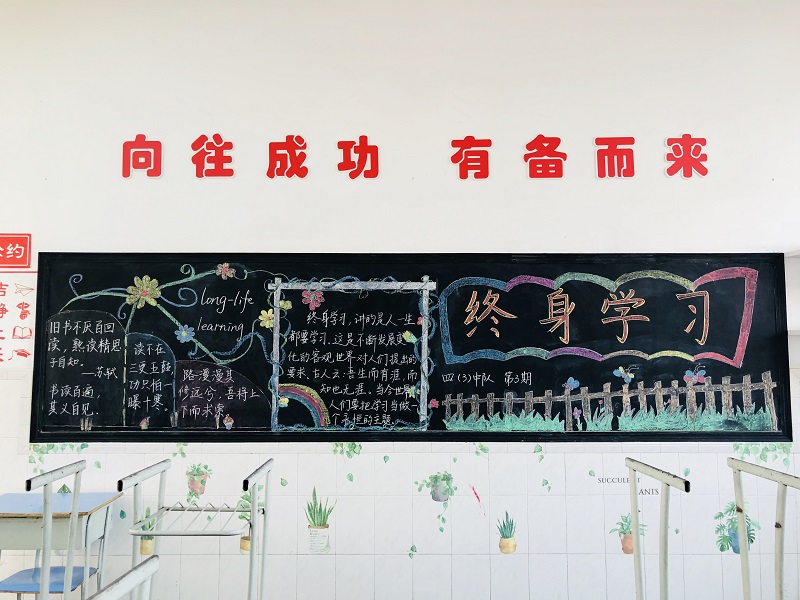 向往成功 有备而来
约
洁
静
long-life
learning
终身学习
旧书不厌百回
读，熟读精思
子自知。
—苏轼
书读百遍，
其义自见。
读不在
三更五鼓，
功只怕一
曝十寒。
路漫漫其
修远兮，吾将上
下而求索
终身学习，讲的是人一生
都要学习。这是不断发展变
化的客观世界对人们提出的
要求。古人云：吾生而有涯，而
知也无涯。当今世界
人们要把学习当做一
个永恒的主题。
四(3)中队 第3期
SUCCULENT
PLANTS